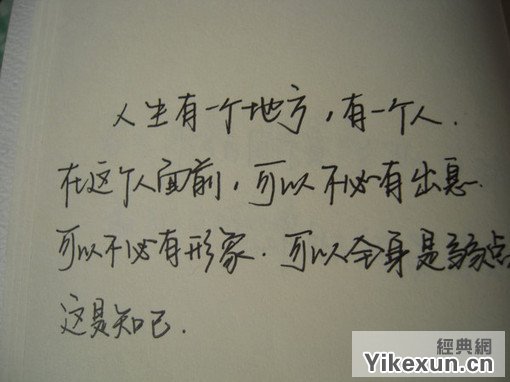 人生有一个地方，有一个人.
在这个人面前，可以不必有出息.
可以不必有形象.可以全身是弱点
这是知己.
經典網
Yikexun.cn